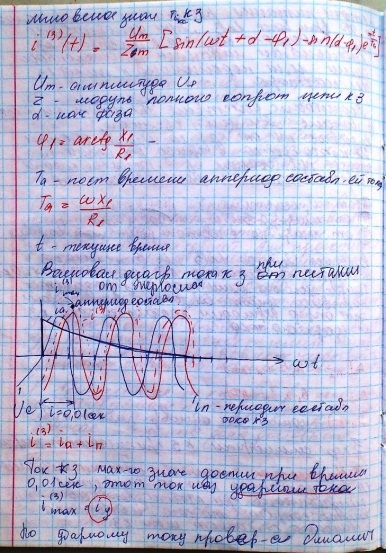 мгновеное знач тока кз
i⁽³⁾(t) = Um/Zm [sin(ωt + α - φ₁) - sin(α - φ₁)e
Um - амплитуда U
Z - модуль полного сопрот цепи кз
α - нач фаза
φ₁ = arctg X₁/R₁
Ta - пост времени аппериод составл-ей тока
Ta = ωX₁/R₁
t - текущее время
Волновая диагр тока к з при питании
от энергосист
i⁽³⁾
аппериод состав
ia
i⁽³⁾
ωt
Uc
t = 0,01 сек
iп - периодич составл
тока кз
i⁽³⁾ = ia + iп
Ток кз мах-го знач достиг при времени
0,01 сек, этот ток наз ударным током
i⁽³⁾ max = iy
По ударному току провер-ся динамич